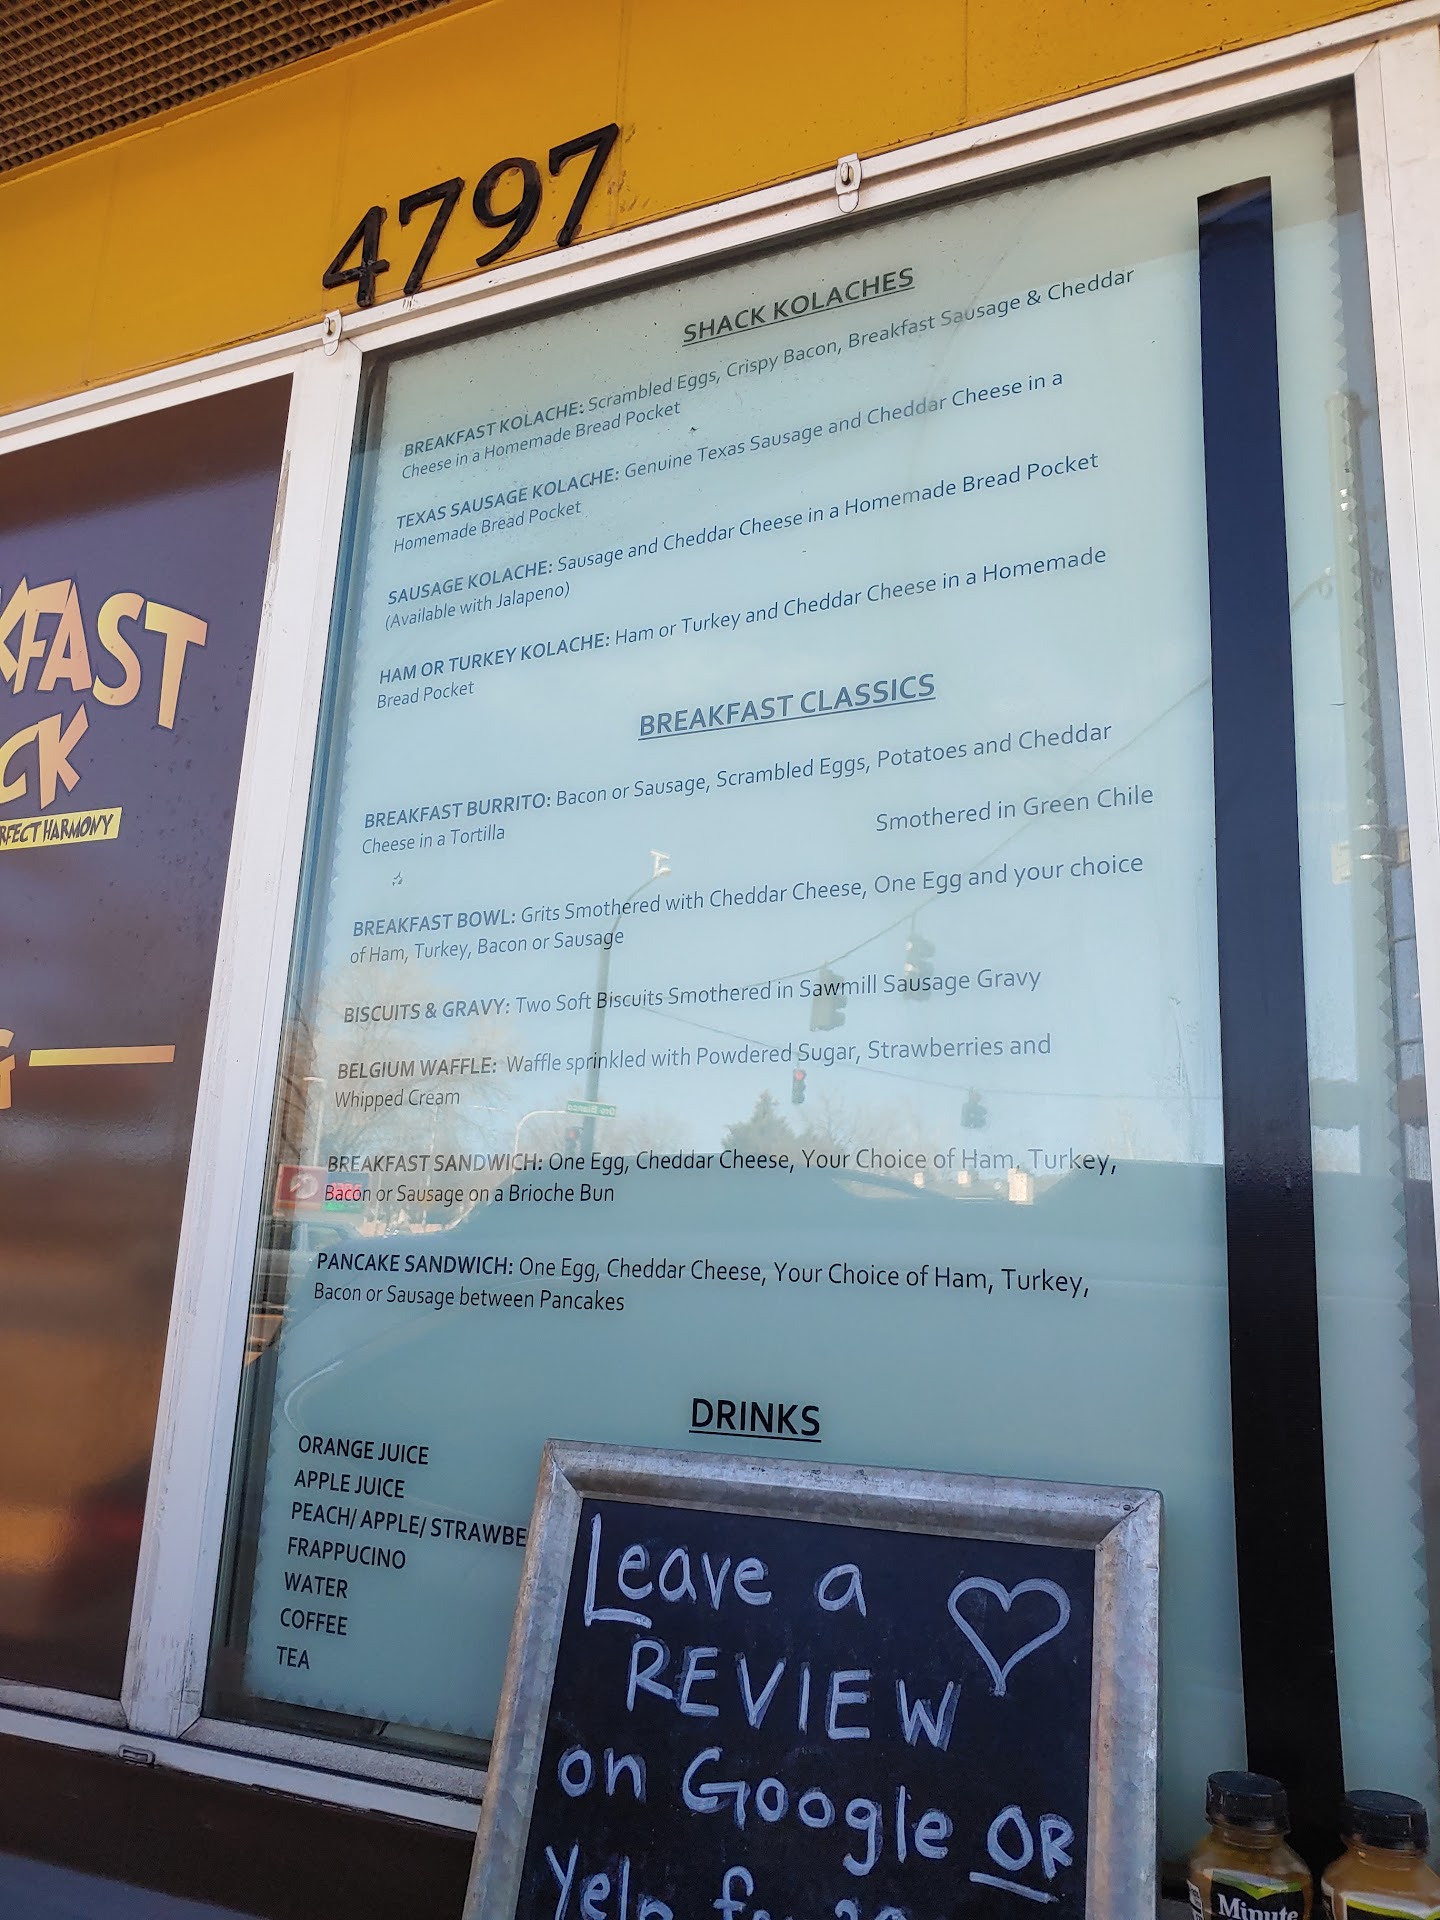 4797
SHACK KOLACHES
BREAKFAST KOLACHE: Scrambled Eggs, Crispy Bacon, Breakfast Sausage & Cheddar
Cheese in a Homemade Bread Pocket
TEXAS SAUSAGE KOLACHE: Genuine Texas Sausage and Cheddar Cheese in a
Homemade Bread Pocket
SAUSAGE KOLACHE: Sausage and Cheddar Cheese in a Homemade Bread Pocket
(Available with Jalapeno)
HAM OR TURKEY KOLACHE: Ham or Turkey and Cheddar Cheese in a Homemade
Bread Pocket
BREAKFAST CLASSICS
BREAKFAST BURRITO: Bacon or Sausage, Scrambled Eggs, Potatoes and Cheddar
Cheese in a Tortilla
Smothered in Green Chile
BREAKFAST BOWL: Grits Smothered with Cheddar Cheese, One Egg and your choice
of Ham, Turkey, Bacon or Sausage
BISCUITS & GRAVY: Two Soft Biscuits Smothered in Sawmill Sausage Gravy
BELGIUM WAFFLE: Waffle sprinkled with Powdered Sugar, Strawberries and
Whipped Cream
BREAKFAST SANDWICH: One Egg, Cheddar Cheese, Your Choice of Ham, Turkey,
Bacon or Sausage on a Brioche Bun
PANCAKE SANDWICH: One Egg, Cheddar Cheese, Your Choice of Ham, Turkey,
Bacon or Sausage between Pancakes
DRINKS
ORANGE JUICE
APPLE JUICE
PEACH/ APPLE/ STRAWBE
FRAPPUCINO
WATER
COFFEE
TEA
KFAST
CK
RFECT HARMONY
G
Leave a
REVIEW
on Google OR
Yelp
Minute